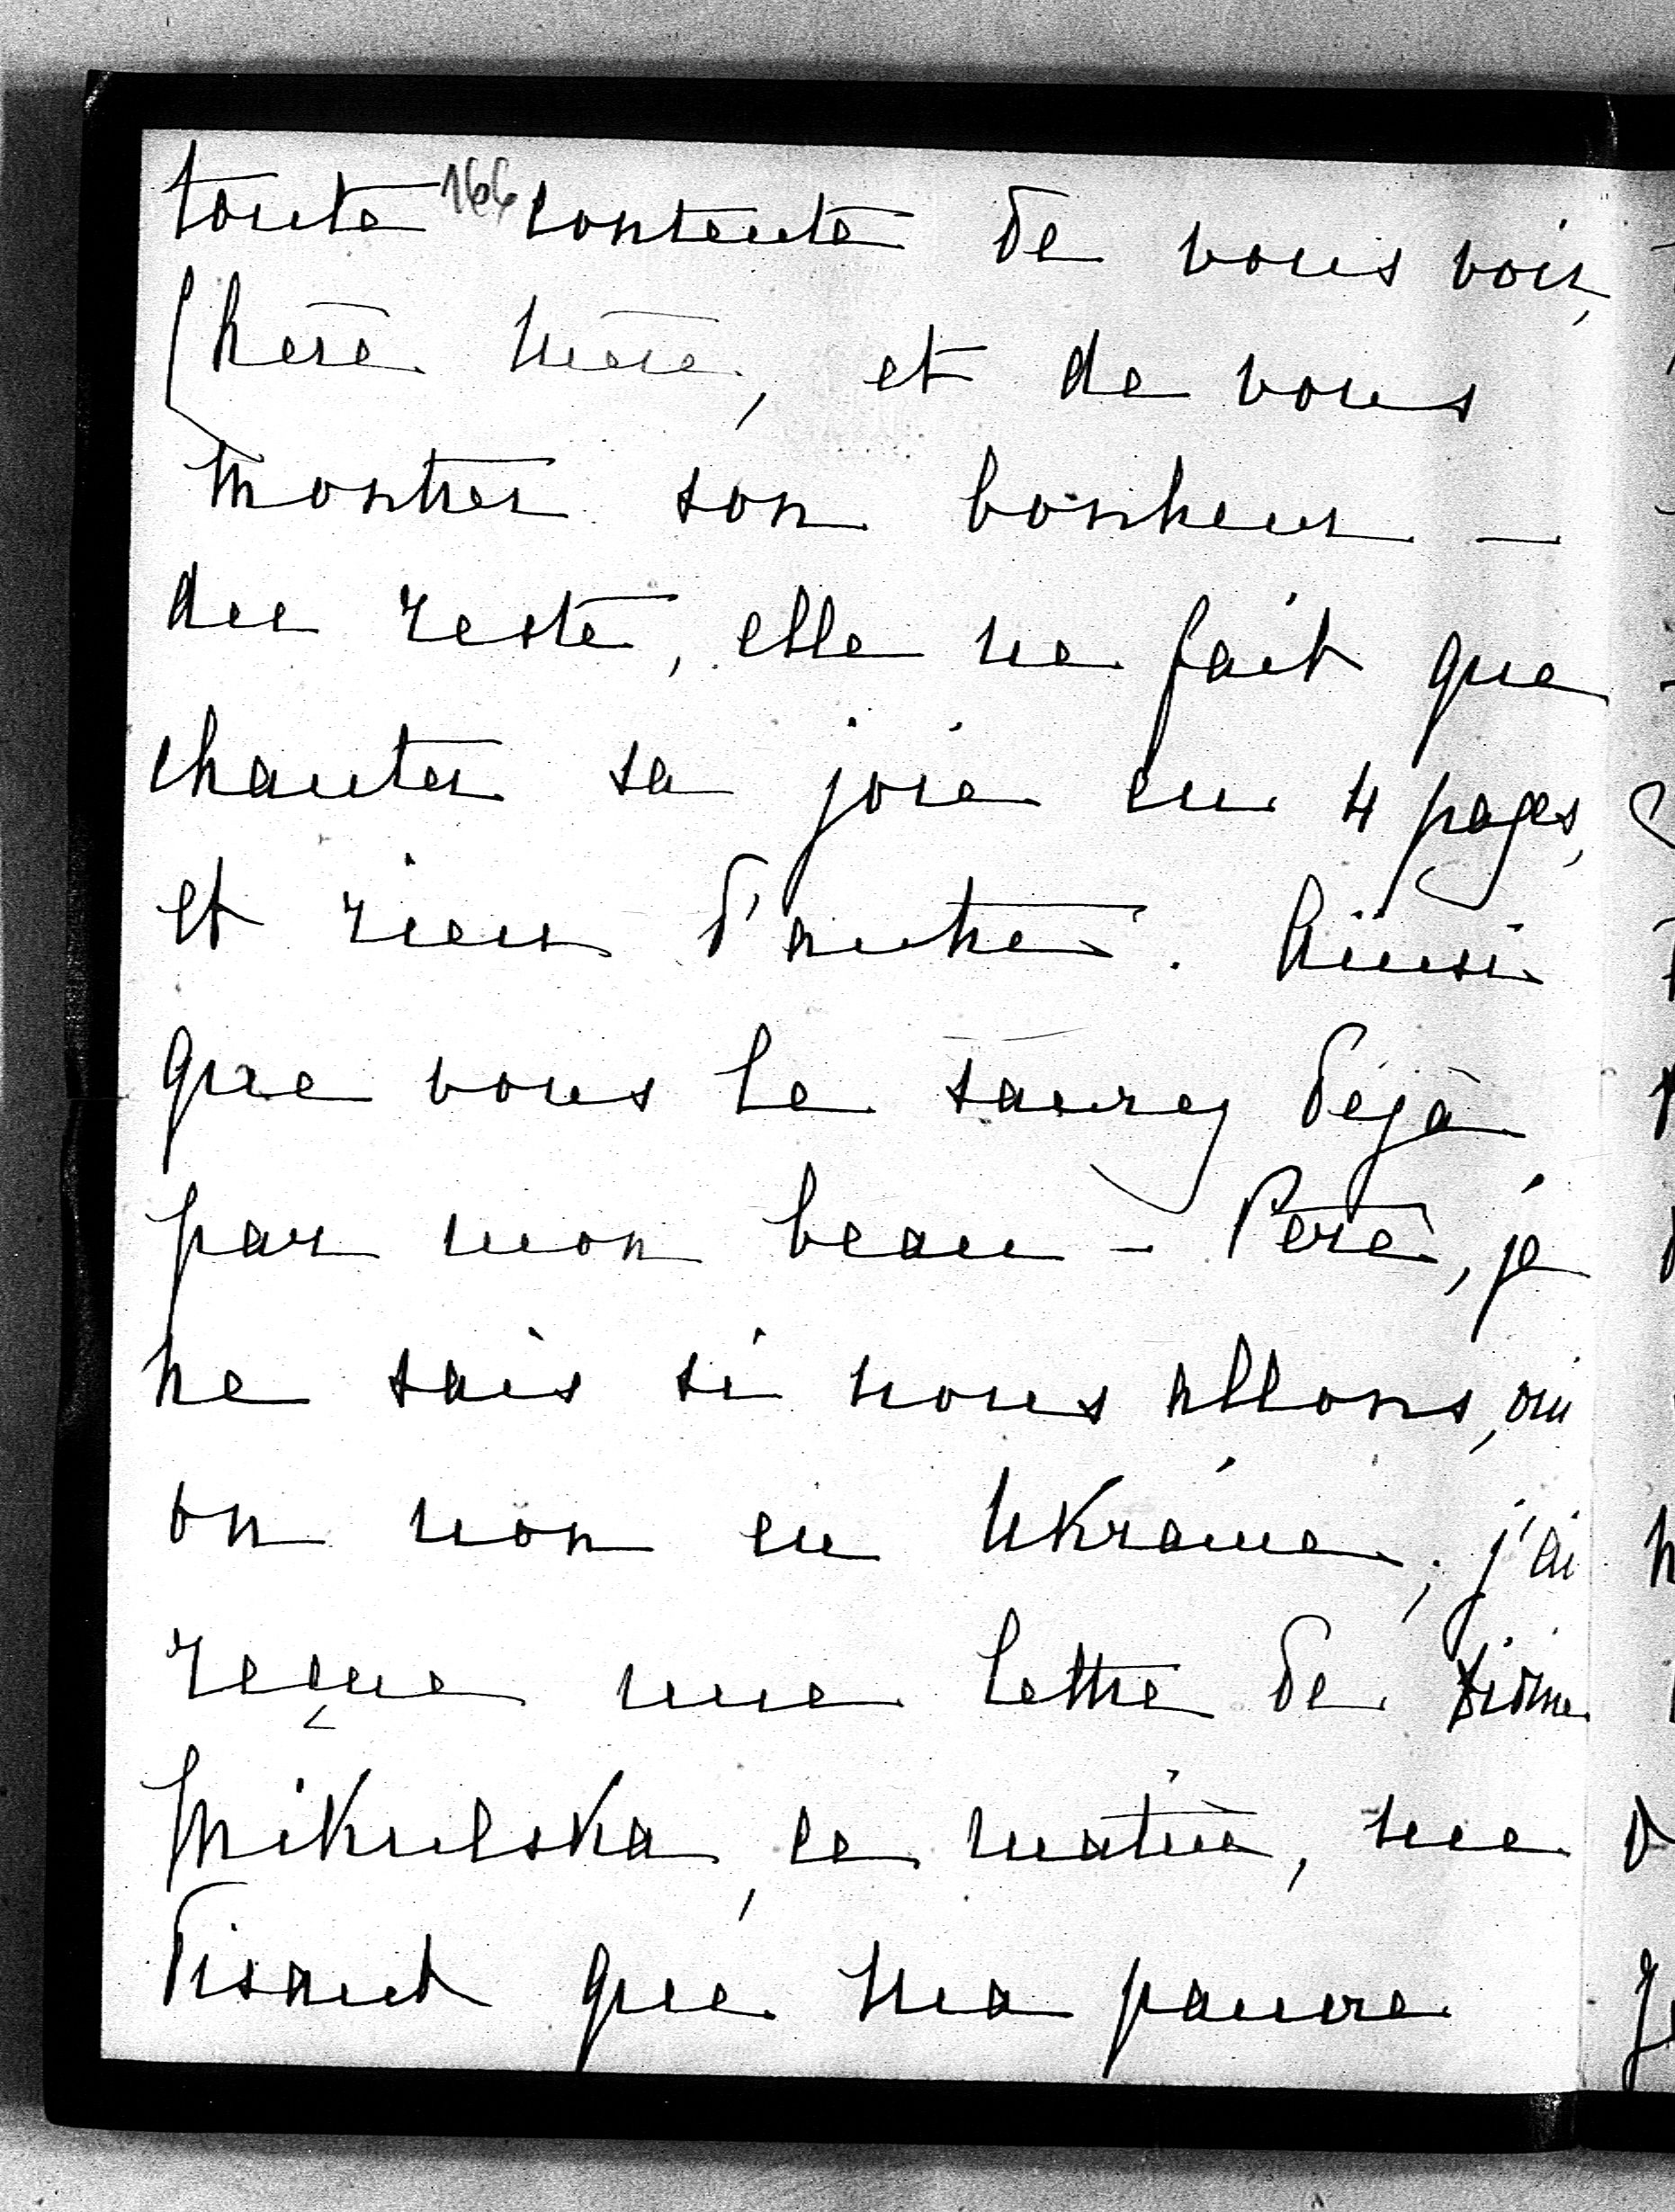 166
toute contente de vous voir,
Chère Mère, et de vous
montrer son bonheur —
du reste, elle ne fait que
chanter sa joie en 4 pages,
et rien d'autre. Ainsi
que vous le saurez déjà
par mon beau-Père, je
ne sais si nous allons, oui
ou non en Ukraine; j'ai
reçue une lettre de
Mikulska, ce matin, me
disant que ma pauvre